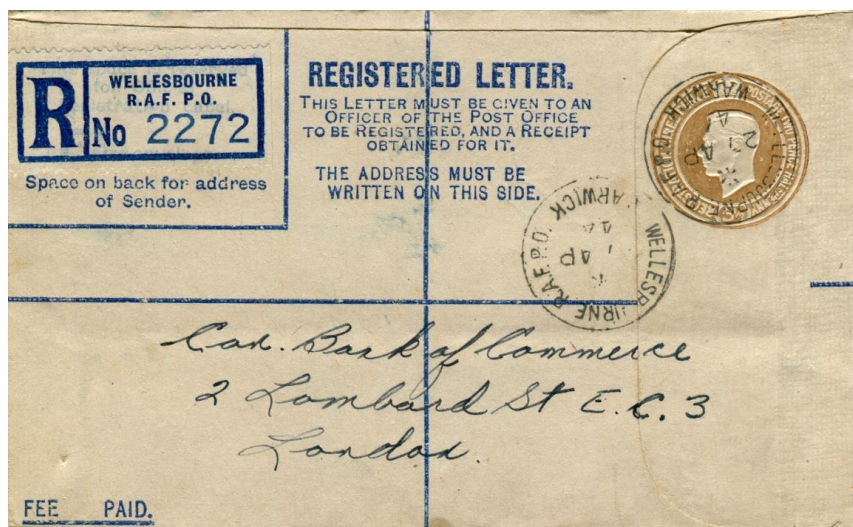 WELLESBOURNE
R.A.F. P.O.
R
No 2272
Space on back for address
of Sender.
REGISTERED LETTER.
THIS LETTER MUST BE GIVEN TO AN
OFFICER OF THE POST OFFICE
TO BE REGISTERED, AND A RECEIPT
OBTAINED FOR IT.
THE ADDRESS MUST BE
WRITTEN ON THIS SIDE.
WELLESBOURNE R.A.F. P.O. WARWICK
AP
44
WELLESBOURNE R.A.F. P.O. WARWICK
AP
Can. Bank of Commerce
2 Lombard St E.C. 3
London
FEE PAID.